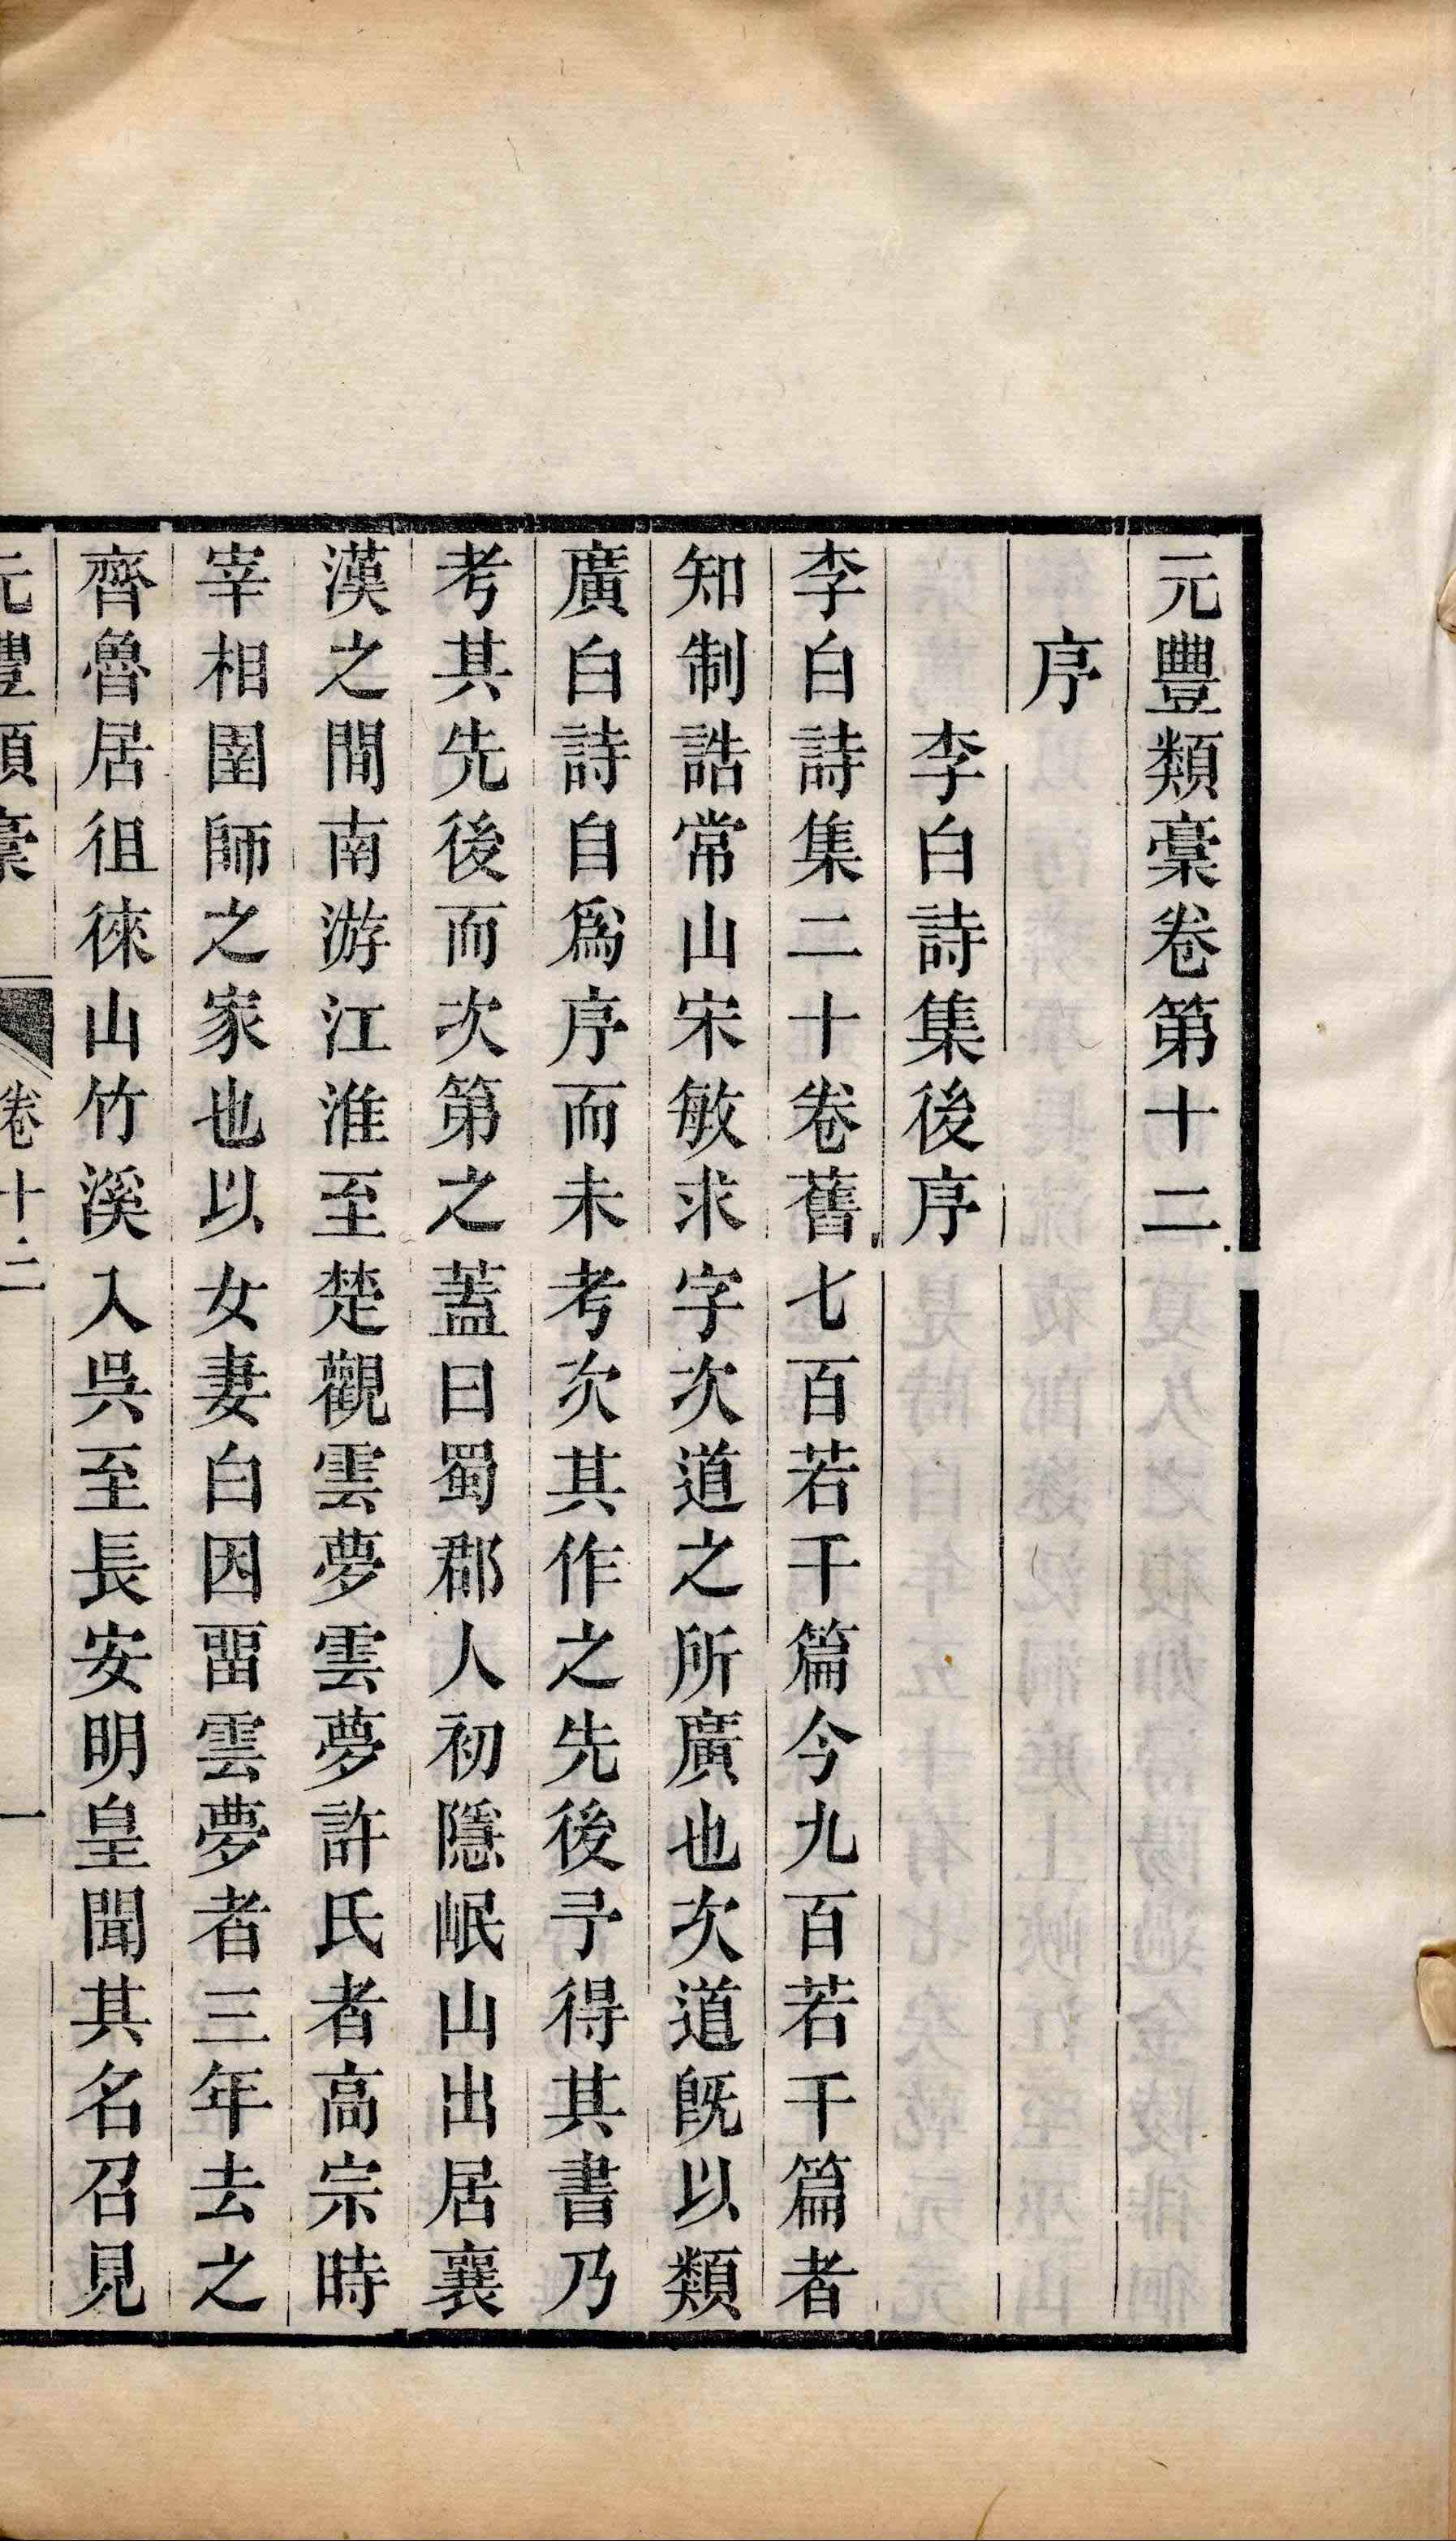 元豐類稾卷第十二
序
李白詩集後序
李白詩集二十卷舊七百若干篇今九百若干篇者
知制誥常山宋敏求字次道之所廣也次道旣以類
廣白詩自爲序而未考次其作之先後予得其書乃
考其先後而次第之蓋曰蜀郡人初隱岷山出居襄
漢之間南游江淮至楚觀雲夢雲夢許氏者高宗時
宰相圉師之家也以女妻白因畱雲夢者三年去之
齊魯居徂徠山竹溪入吳至長安明皇聞其名召見
元豐類稾 卷十二 一